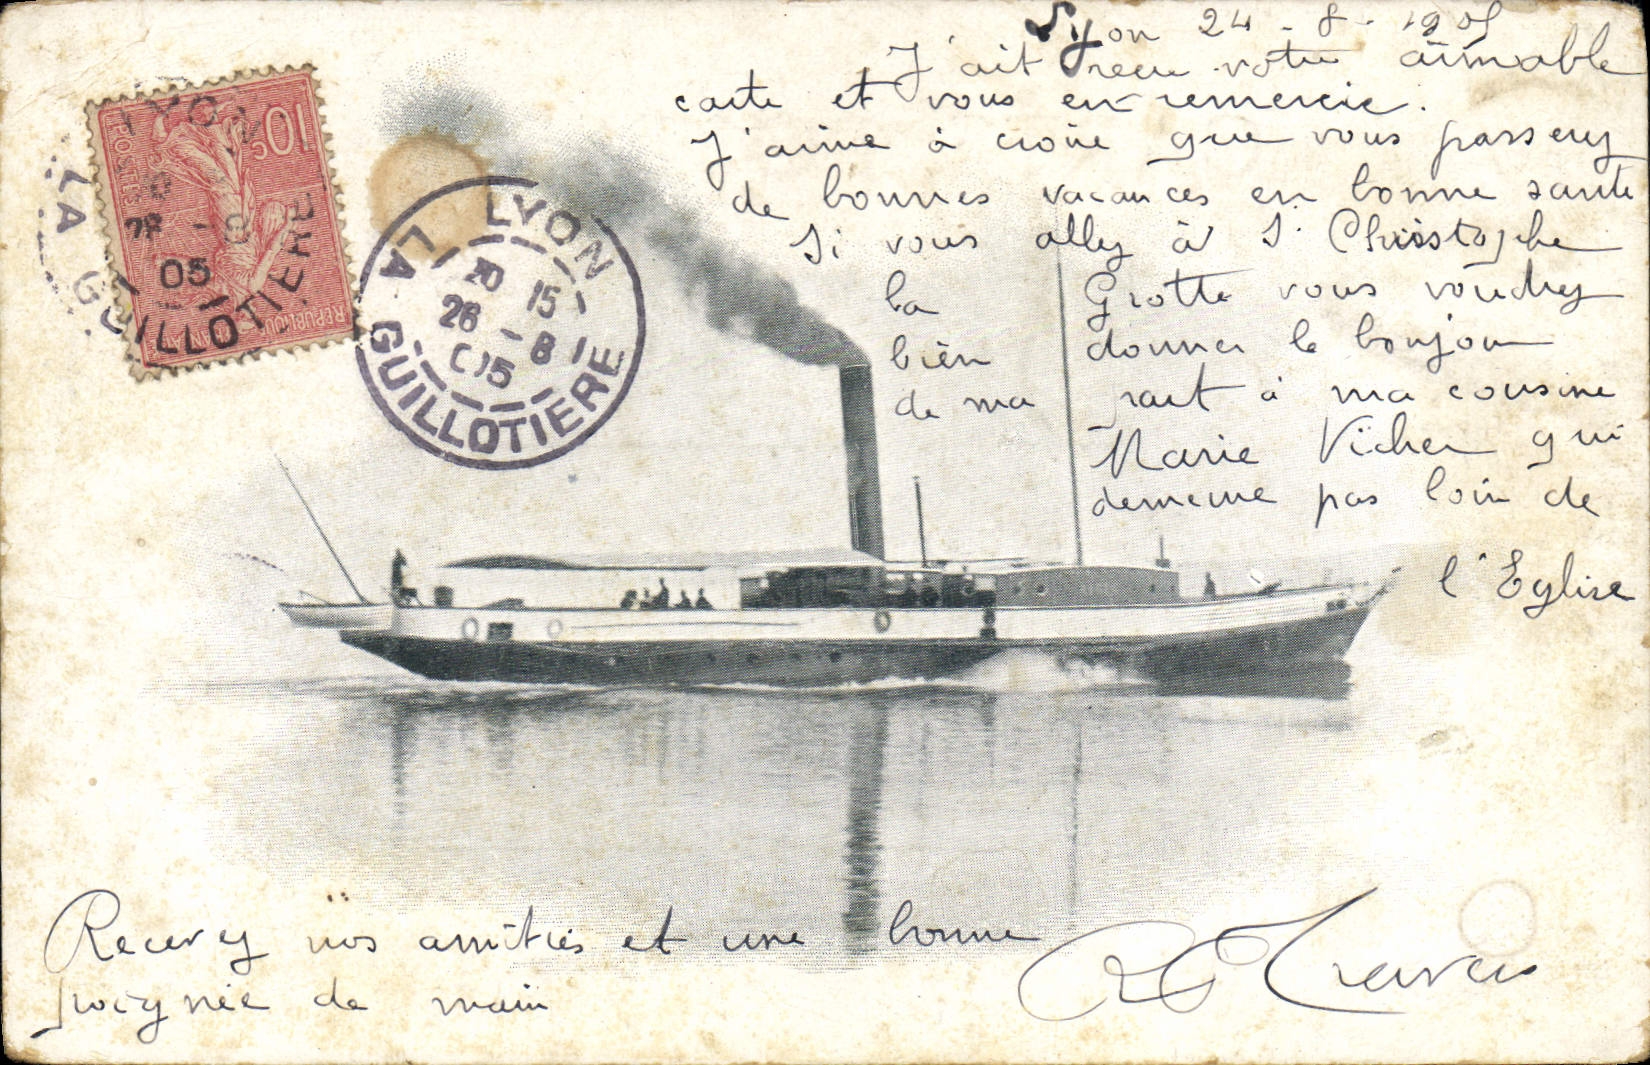 Lyon 24 - 8 - 1905
J'ait reçu votre aimable
carte et vous en remercie.
J'aime à croire que vous passerez
de bonnes vacances en bonne santé
Si vous allez à St Christophe
la Grotte vous voudrez
bien donner le bonjour
de ma part à ma cousine
Marie Vicher qui
demeure pas loin de
l'Eglise
Recevez nos amitiés et une bonne
poignée de main
LYON
LA GUILLOTIERE
20 15
26 - 8
05
10c
POSTES
LYON
LA GUILLOTIERE
- 8
05